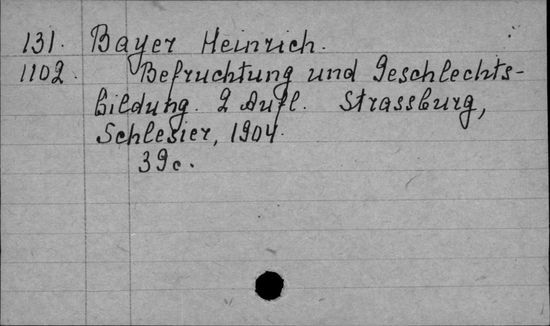 131. Bayer Heinrich.
1102. Befruchtung und Geschlechts-
bildung. 2 Aufl. Strassburg,
Schlesier, 1904.
39 c.